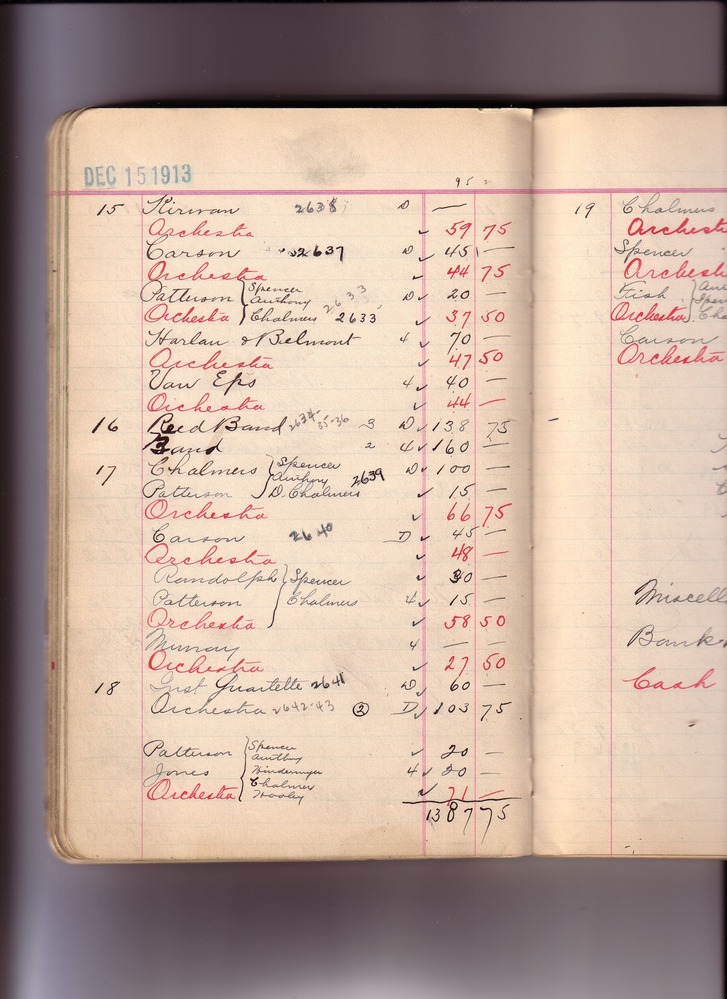 DEC 15 1913
95
15 Kirwan 2638 D —
Orchestra ✓ 59 75
Carson 2637 D ✓ 45 —
Orchestra ✓ 44 75
Patterson } Spencer Anthony 2633 D ✓ 20 —
Orchestra } Chalmers 2633 ✓ 37 50
Harlan & Belmont 4 ✓ 70 —
Orchestra ✓ 47 50
Van Eps 4 ✓ 40 —
Orchestra ✓ 44 —
16 Reed Band 2634-35-36 3 D ✓ 138 75
Band 2 4 ✓ 160 —
17 Chalmers } Spencer Anthony 2639 D ✓ 100 —
Patterson } D. Chalmers ✓ 15 —
Orchestra ✓ 66 75
Carson 2640 D ✓ 45 —
Orchestra ✓ 48 —
Randolph } Spencer ✓ 30 —
Patterson } Chalmers 4 ✓ 15 —
Orchestra ✓ 58 50
Murray 4 — —
Orchestra ✓ 27 50
18 Inst Quartette 2641 D ✓ 60 —
Orchestra 2642-43 (2) D ✓ 103 75
Patterson } Spencer Anthony ✓ 20 —
Jones } 4 ✓ 20 —
Orchestra } Chalmers Hooley ✓ 71 —
1387 75
19 Chalmers
Orchest
Spencer
Orchest
Fish
Orchestra
Carson
Orchestra
Miscell
Bank
Cash